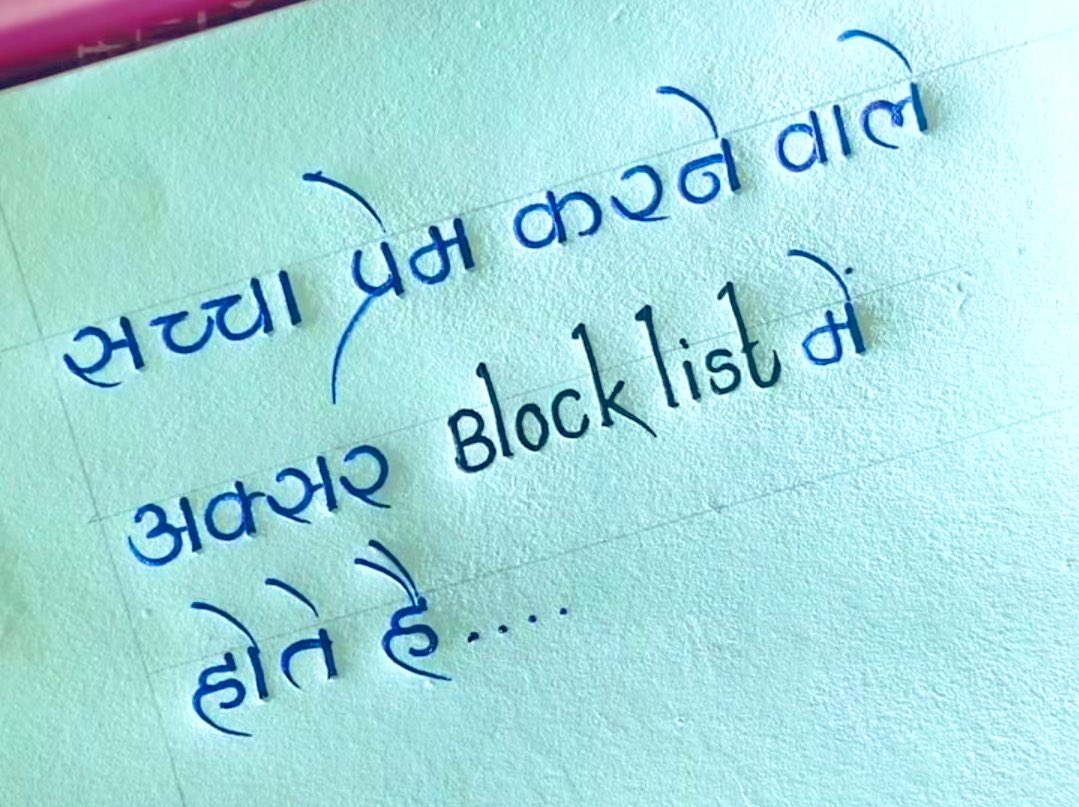 सच्चा प्रेम करने वाले
अक्सर Block list में
होते है....